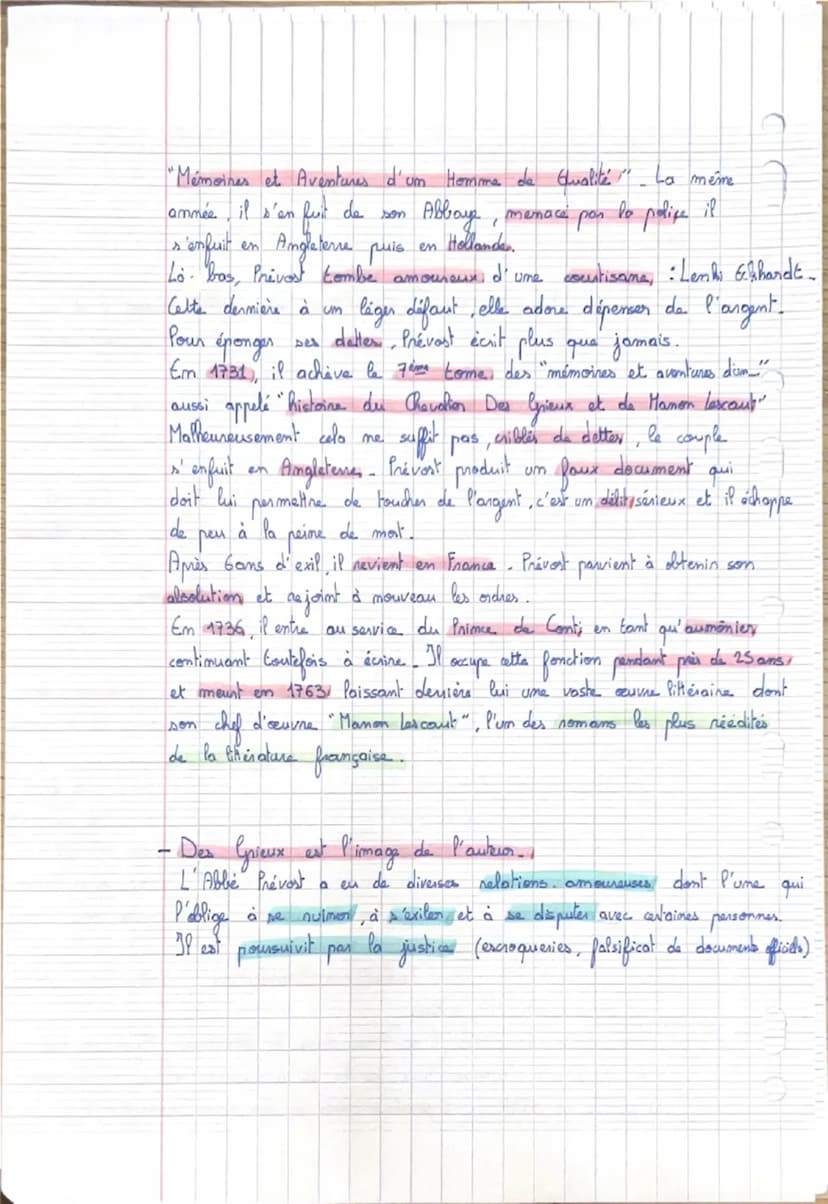 "Mémoires et Aventures d'un Homme de Qualité". La même
année, il s'en fuit de son Abbaye, menacé par la police il
s'enfuit en Angleterre puis en Hollande.
Là-bas, Prévost tombe amoureux d'une courtisane, : Lenki Eckhardt.
Cette dernière à un léger défaut, elle adore dépenser de l'argent.
Pour éponger ses dettes, Prévost écrit plus que jamais.
En 1731, il achève le 7ème tome des "mémoires et aventures d'un..."
aussi appelé "histoire du Chevalier Des Grieux et de Manon Lescaut"
Malheureusement cela ne suffit pas, criblés de dettes, le couple
s'enfuit en Angleterre. Prévost produit un faux document qui
doit lui permettre de toucher de l'argent, c'est un délit sérieux et il échappe
de peu à la peine de mort.
Après 6ans d'exil, il revient en France. Prévost parvient à obtenir son
absolution et rejoint à nouveau les ordres.
En 1736, il entre au service du Prince de Conti en tant qu'aumônier,
continuant toutefois à écrire. Il occupe cette fonction pendant près de 25 ans,
et meurt en 1763 laissant derrière lui une vaste œuvre littéraire dont
son chef d'œuvre "Manon Lescaut", l'un des romans les plus réédités
de la littérature française.
- Des Grieux est l'image de l'auteur.
L'Abbé Prévost a eu de diverses relations amoureuses dont l'une qui
l'oblige à se ruiner, à s'exiler et à se disputer avec certaines personnes.
Il est poursuivit par la justice (escroqueries, falsificat de documents officiels)